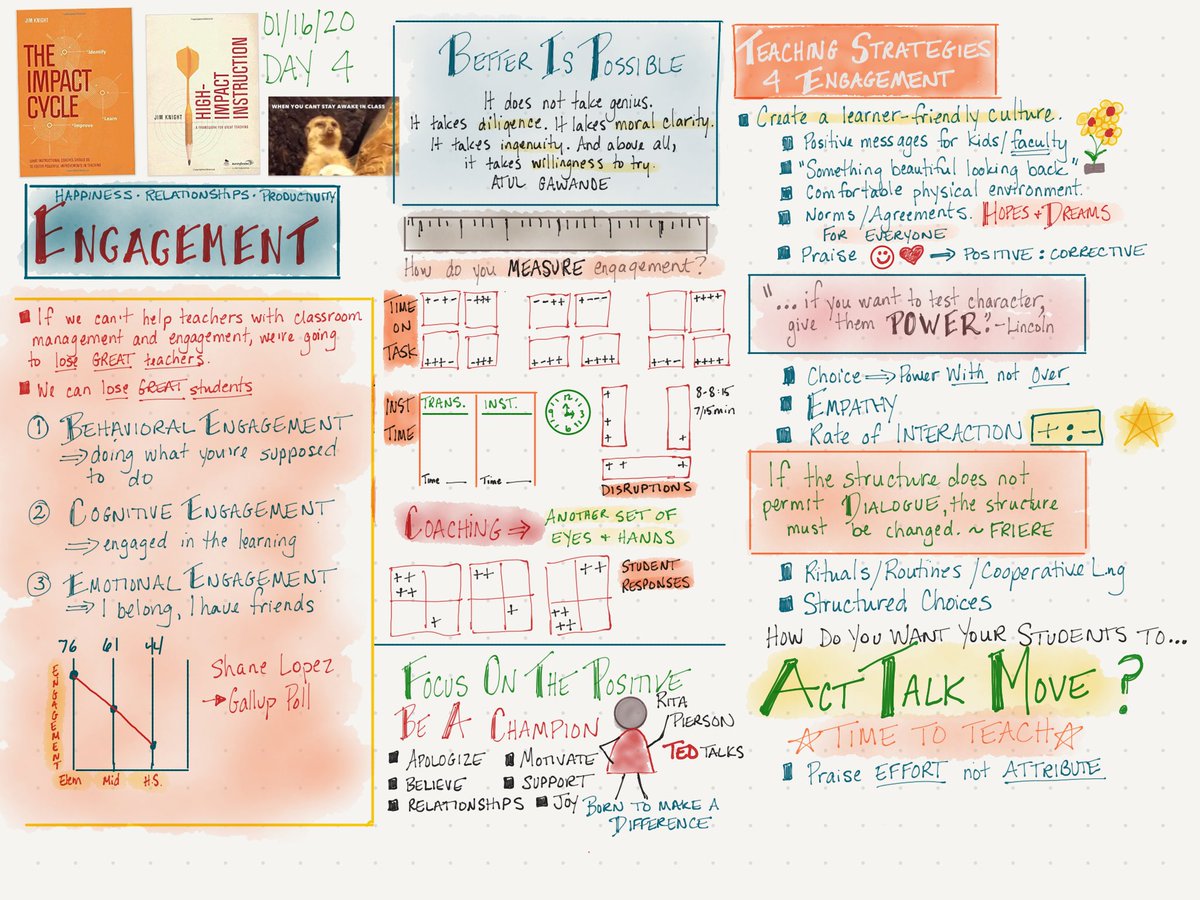 JIM KNIGHT
THE
IMPACT
CYCLE
Identify
Learn
Improve
JIM KNIGHT
HIGH-
IMPACT
INSTRUCTION
A FRAMEWORK FOR GREAT TEACHING
01/16/20
DAY 4
WHEN YOU CANT STAY AWAKE IN CLASS
HAPPINESS • RELATIONSHIPS • PRODUCTIVITY
ENGAGEMENT
If we can't help teachers with classroom
management and engagement, we're going
to lose GREAT teachers.
We can lose GREAT students
1 BEHAVIORAL ENGAGEMENT
⇒ doing what you're supposed
to do
2 COGNITIVE ENGAGEMENT
⇒ engaged in the learning
3 EMOTIONAL ENGAGEMENT
⇒ I belong, I have friends
76 61 44
ENGAGEMENT
Elem Mid H.S.
Shane Lopez
→ Gallup Poll
BETTER IS POSSIBLE
It does not take genius.
It takes diligence. It takes moral clarity.
It takes ingenuity. And above all,
it takes willingness to try.
ATUL GAWANDE
How do you MEASURE engagement?
TIME
ON
TASK
+-+- -+++ --++ +--- ++++
+++- -+++ -++- ++++ +-+- -+++
INST
TIME
TRANS. INST.
Time __ Time __
12
3
6
9
8-8:15
7/15min
+ + + +
++ +
DISRUPTIONS
COACHING ⇒ ANOTHER SET OF
EYES + HANDS
++ ++ ++
++ + + ++ ++
STUDENT
RESPONSES
FOCUS ON THE POSITIVE
BE A CHAMPION
RITA
PIERSON
TED TALKS
APOLOGIZE
MOTIVATE
BELIEVE
SUPPORT
RELATIONSHIPS
JOY
BORN TO MAKE A
DIFFERENCE
TEACHING STRATEGIES
4 ENGAGEMENT
Create a learner-friendly culture.
Positive messages for kids/faculty
"Something beautiful looking back"
Comfortable physical environment.
Norms/Agreements. HOPES + DREAMS
FOR EVERYONE
Praise → POSITIVE : CORRECTIVE
"... if you want to test character,
give them POWER." -Lincoln
Choice ⇒ Power With not Over
EMPATHY
Rate of INTERACTION + : -
If the structure does not
permit DIALOGUE, the structure
must be changed. ~ FRIERE
Rituals/Routines/Cooperative Lng
Structured Choices
HOW DO YOU WANT YOUR STUDENTS TO...
ACT TALK MOVE?
TIME TO TEACH
Praise EFFORT not ATTRIBUTE